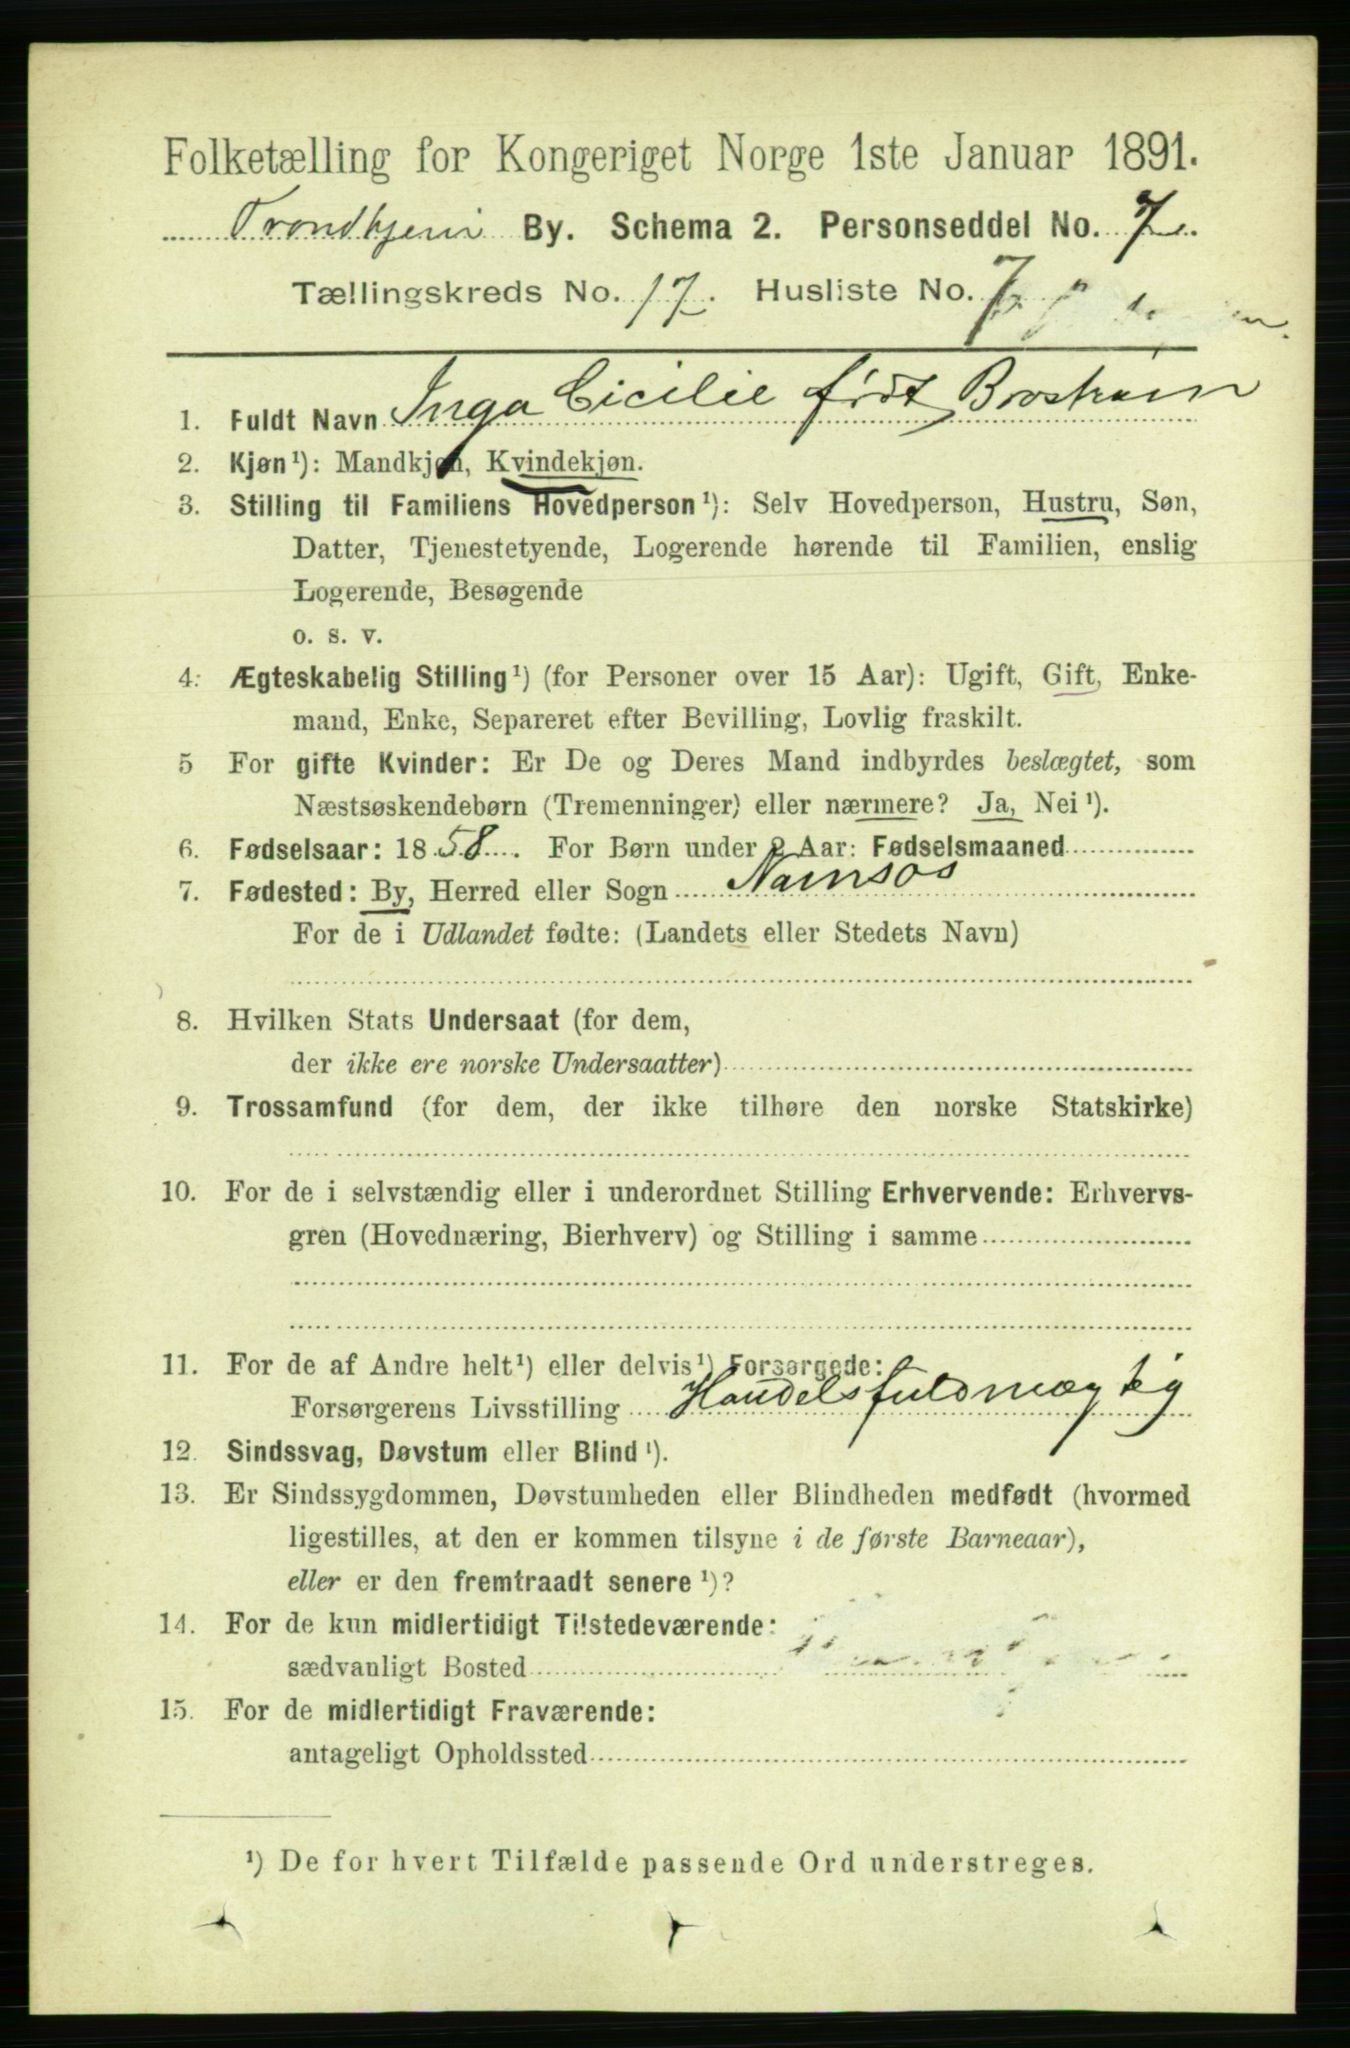 Folketælling for Kongeriget Norge 1ste Januar 1891.
Trondhjem By. Schema 2. Personseddel No. 7.
Tællingskreds No. 17. Husliste No. 7
1. Fuldt Navn Inga Cicilie født Broström
2. Kjøn¹): Mandkjøn, Kvindekjøn.
3. Stilling til Familiens Hovedperson¹): Selv Hovedperson, Hustru, Søn,
Datter, Tjenestetyende, Logerende hørende til Familien, enslig
Logerende, Besøgende
o. s. v.
4: Ægteskabelig Stilling¹) (for Personer over 15 Aar): Ugift, Gift, Enke-
mand, Enke, Separeret efter Bevilling, Lovlig fraskilt.
5 For gifte Kvinder: Er De og Deres Mand indbyrdes beslægtet, som
Næstsøskendebørn (Tremenninger) eller nærmere? Ja, Nei¹).
6. Fødselsaar: 1858. For Børn under 2 Aar: Fødselsmaaned
7. Fødested: By, Herred eller Sogn Namsos
For de i Udlandet fødte: (Landets eller Stedets Navn)
8. Hvilken Stats Undersaat (for dem,
der ikke ere norske Undersaatter)
9. Trossamfund (for dem, der ikke tilhøre den norske Statskirke)
10. For de i selvstændig eller i underordnet Stilling Erhvervende: Erhvervs-
gren (Hovednæring, Bierhverv) og Stilling i samme
11. For de af Andre helt¹) eller delvis¹) Forsørgede:
Forsørgerens Livsstilling Handelsfuldmægtig
12. Sindssvag, Døvstum eller Blind¹).
13. Er Sindssygdommen, Døvstumheden eller Blindheden medfødt (hvormed
ligestilles, at den er kommen tilsyne i de første Barneaar),
eller er den fremtraadt senere¹)?
14. For de kun midlertidigt Tilstedeværende:
sædvanligt Bosted
15. For de midlertidigt Fraværende:
antageligt Opholdssted
¹) De for hvert Tilfælde passende Ord understreges.